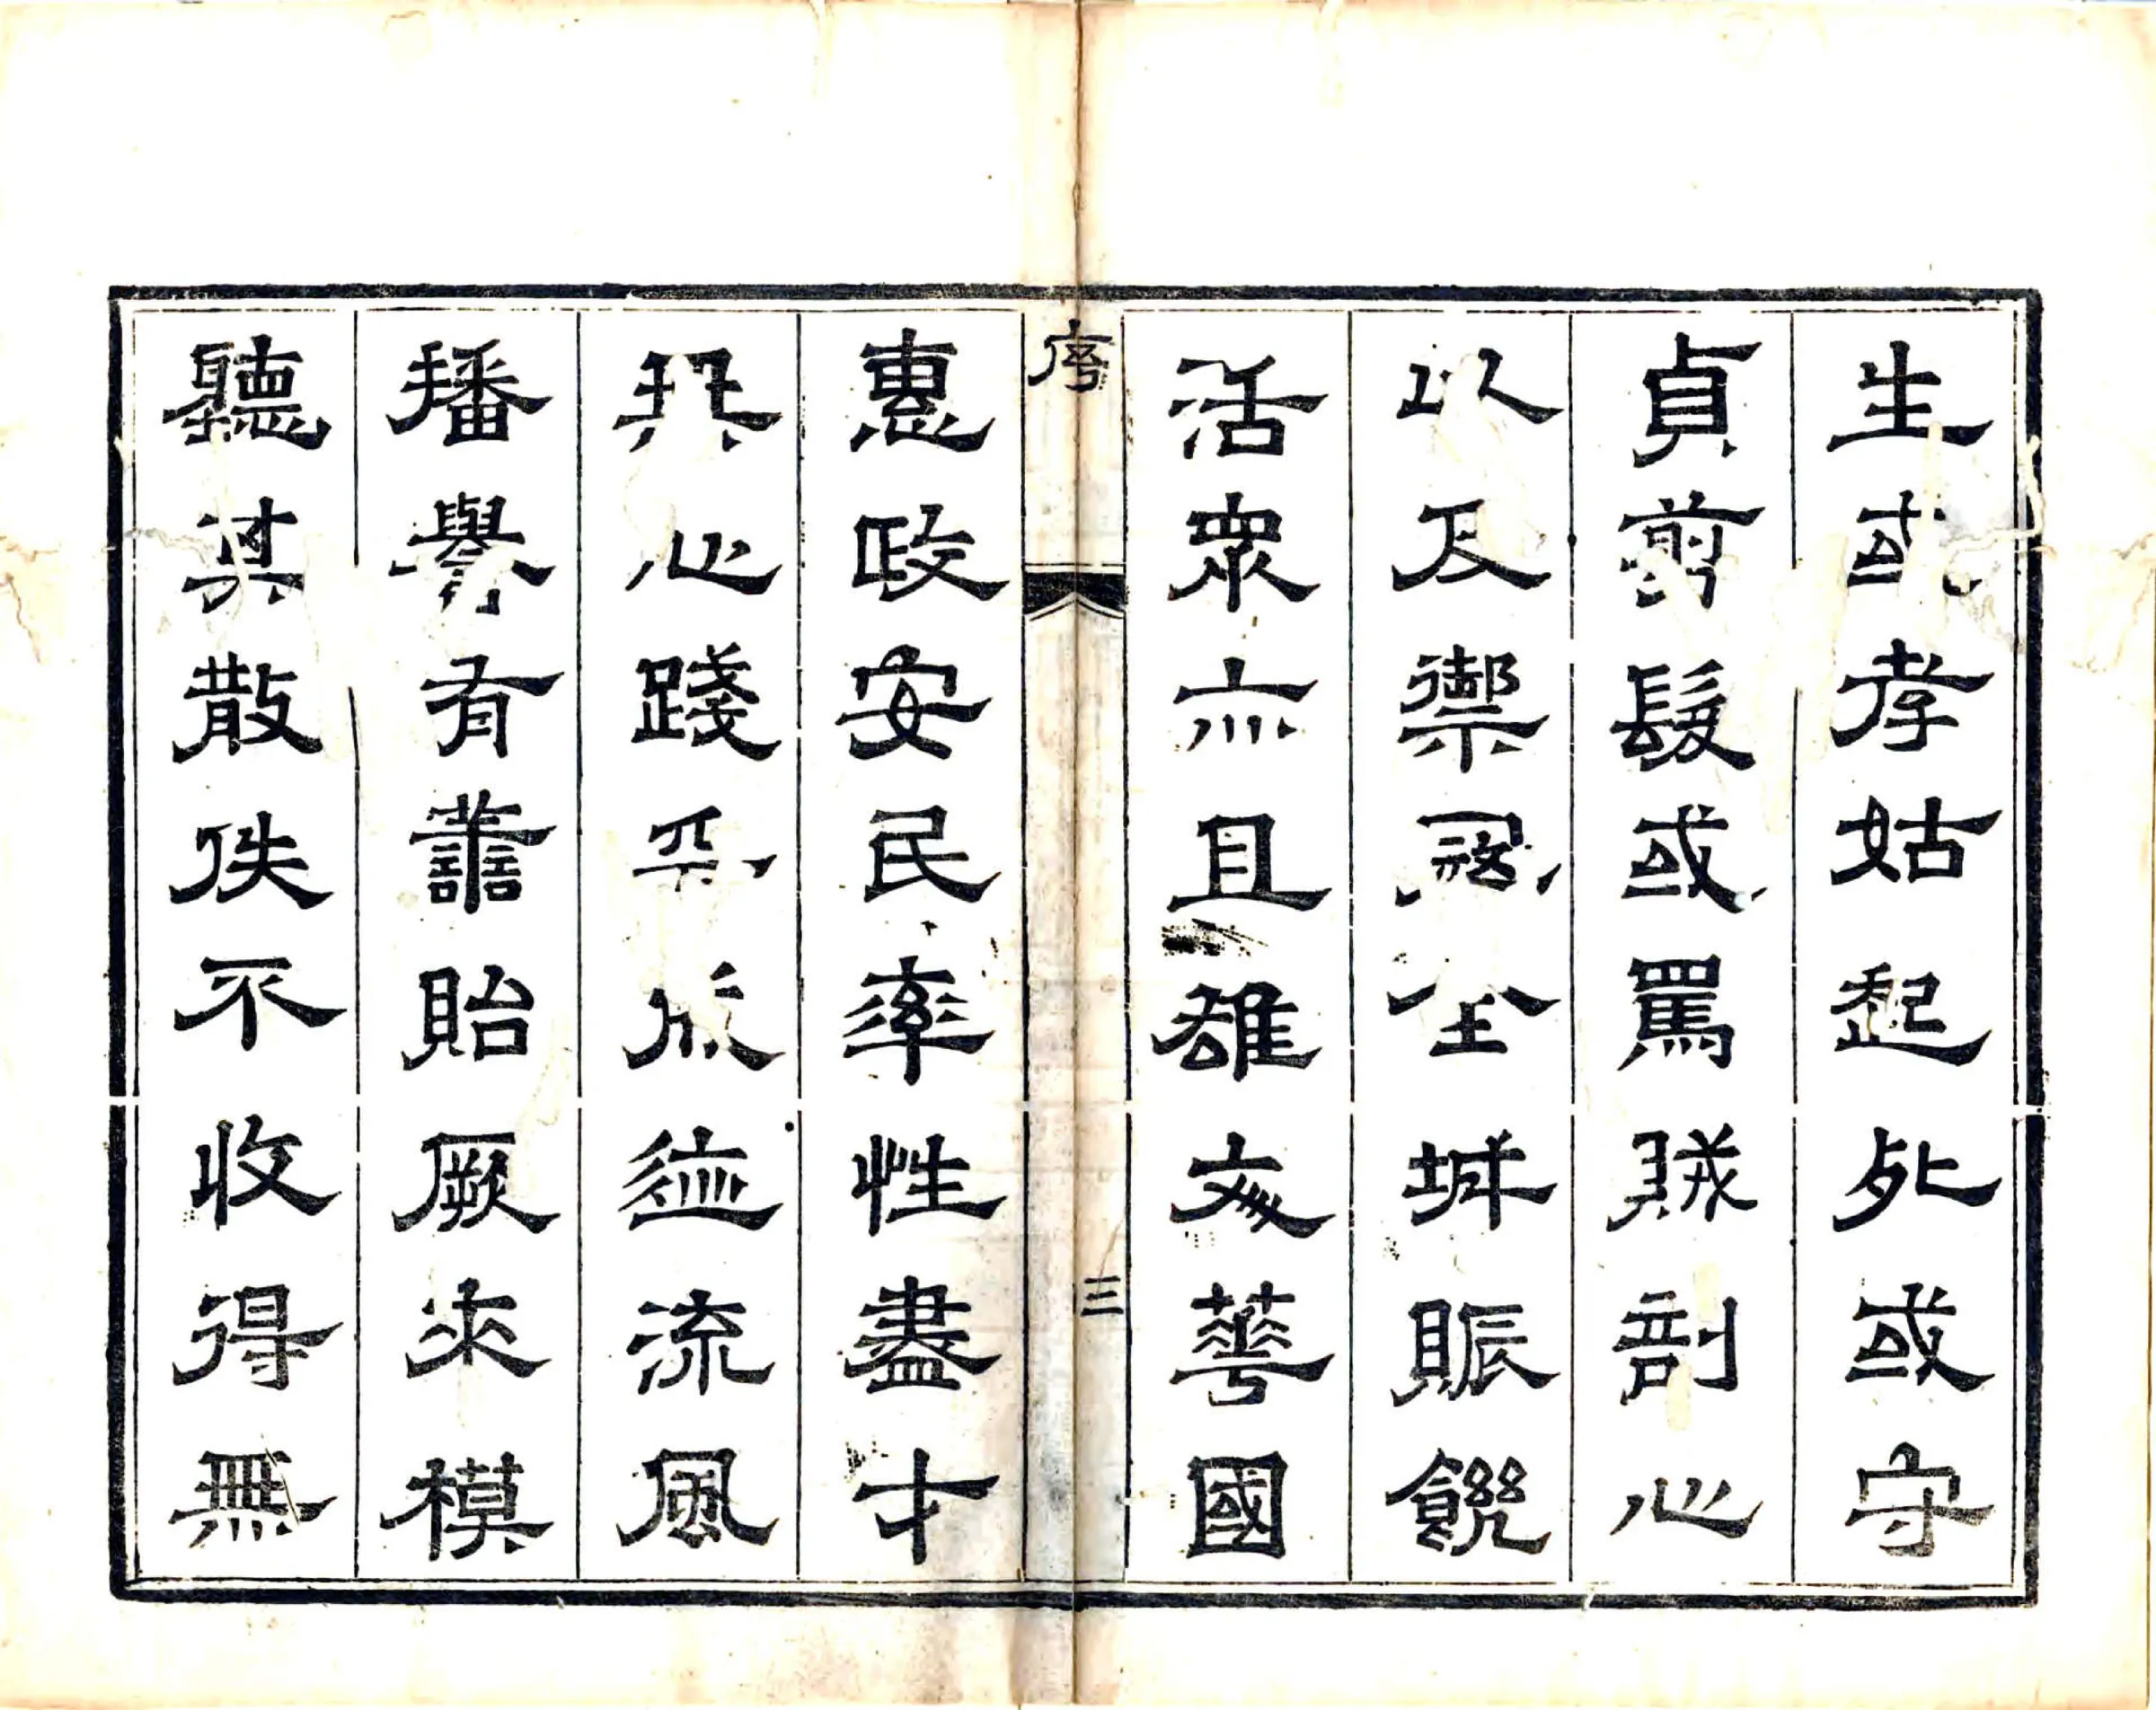 生或孝姑起死或守
貞剪髮或罵賊剖心
以及禦寇全城賑饑
活衆亦且雄文華國
序
三
惠政安民率性盡才
心踐迹流風
播譽有叢貽厥來模
聽其散佚不收得無